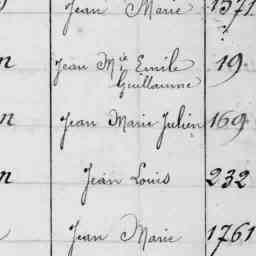 Jean Marie 1371
n Jean M^ie Emile 19
Guillaume
n Jean Marie Julien 169
n Jean Louis 232
Jean Marie 1761